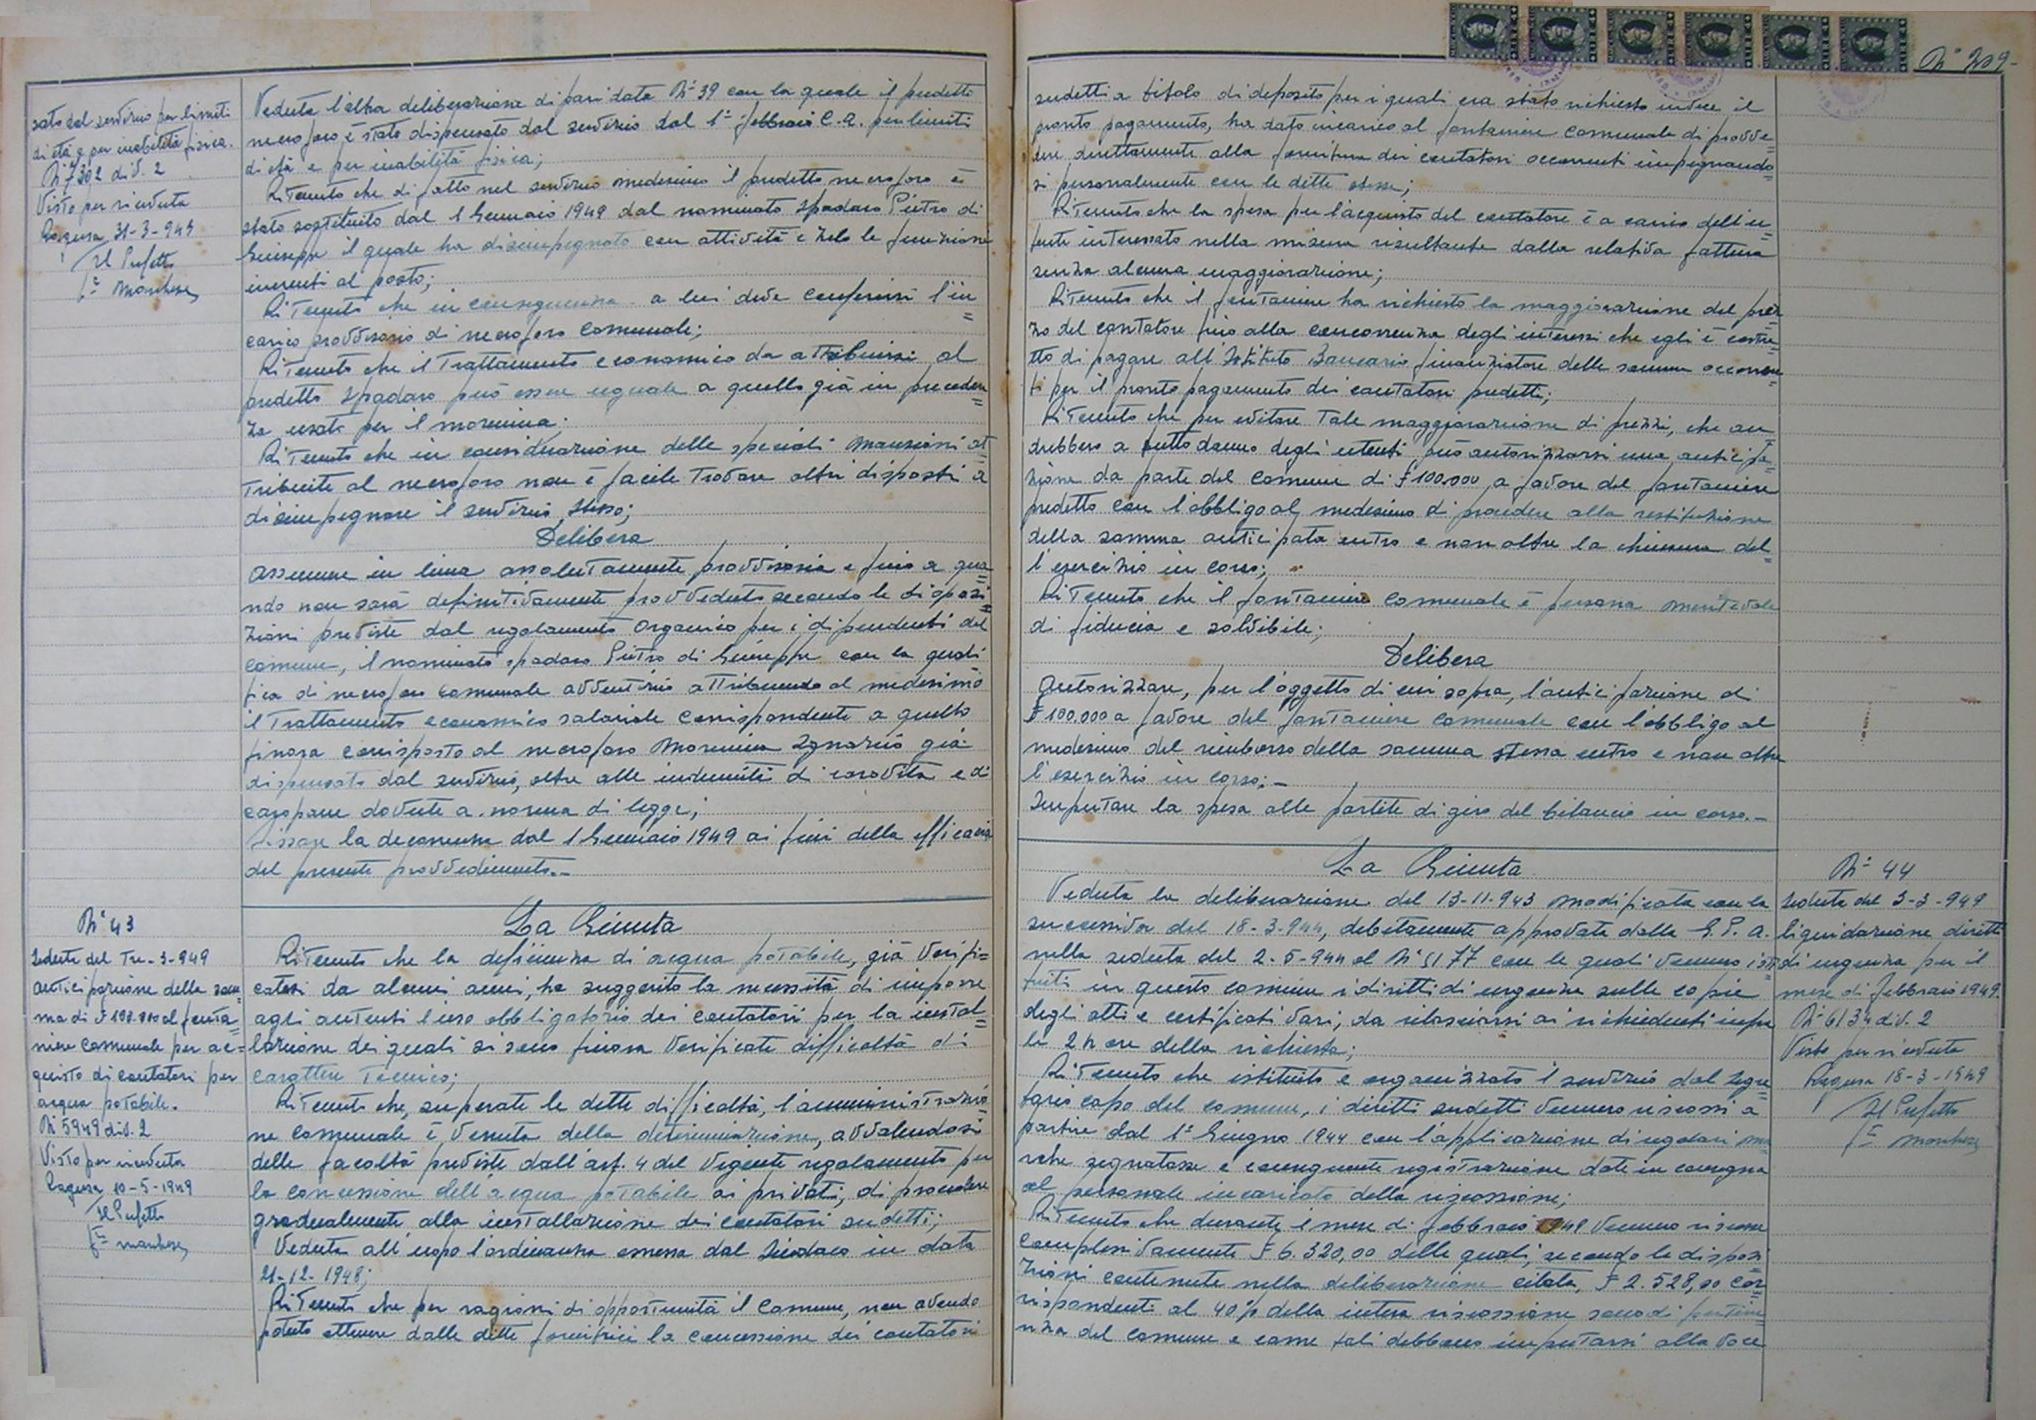 N° 209-
sato dal servizio per limiti
di età e per inabilità fisica.
N° 7302 div. 2
Visto per ricevuta
Ragusa 31-3-949
Il Prefetto
Veduta l'altra deliberazione di pari data N° 39 con la quale il predetto
necroforo è stato dispensato dal servizio dal 1° febbraio C.A. per limiti
di età e per inabilità fisica;
Ritenuto che di fatto nel servizio medesimo il predetto necroforo è
stato sostituito dal 1 Gennaio 1949 dal nominato Spadaro Pietro di
Giuseppe il quale ha disimpegnato con attività e zelo le funzioni
inerenti al posto;
Ritenuto che in conseguenza a lui deve conferirsi l'in=
carico provvisorio di necroforo comunale;
Ritenuto che il trattamento economico da attribuirsi al
predetto Spadaro può essere uguale a quello già in preceden=
za usato per il Mormina;
Ritenuto che in considerazione delle speciali mansioni at=
tribuite al necroforo non è facile trovare altri disposti a
disimpegnare il servizio stesso;
Delibera
Assumere in linea assolutamente provvisoria e fino a qua=
ndo non sarà definitivamente provveduto secondo le disposi=
zioni previste dal regolamento organico per i dipendenti del
comune, il nominato Spadaro Pietro di Giuseppe con la quali
fica di necroforo comunale avventizio attribuendo al medesimo
il trattamento economico salariale corrispondente a quello
finora corrisposto al necroforo Mormina Ignazio già
dispensato dal servizio, oltre alle indennità di carovita e di
caropane dovute a norma di legge;
Fissare la decorrenza dal 1 Gennaio 1949 ai fini della efficacia
del presente provvedimento.-
N° 43
Seduta del Tre-3-949
Anticipazione della som=
ma di £ 100.000 al fonta=
niere comunale per ac=
quisto di contatori per
acqua potabile.
N° 5949 div. 2
Visto per ricevuta
Ragusa 10-5-1949
Il Prefetto
La Giunta
Ritenuto che la deficienza di acqua potabile, già verifi=
catasi da alcuni anni, ha suggerito la necessità di imporre
agli utenti l'uso obbligatorio dei contatori per la instal=
lazione dei quali si sono finora verificate difficoltà di
carattere tecnico;
Ritenuto che, superate le dette difficoltà, l'amministrazio=
ne comunale è venuta della determinazione, avvalendosi
delle facoltà previste dall'art. 4 del vigente regolamento per
la concessione dell'acqua potabile ai privati, di procedere
gradualmente alla installazione dei contatori sudetti;
Veduta all'uopo l'ordinanza emessa dal Sindaco in data
21-12-1948;
Ritenuto che per ragioni di opportunità il Comune, non avendo
potuto ottenere dalle ditte fornitrici la concessione dei contatori
sudetti a titolo di deposito per i quali era stato richiesto invece il
pronto pagamento, ha dato incarico al fontaniere comunale di provve=
dere direttamente alla fornitura dei contatori occorrenti impegnando=
si personalmente con le dette stesse;
Ritenuto che la spesa per l'acquisto del contatore è a carico dell'u=
tente interessato nella misura risultante dalla relativa fattura
senza alcuna maggiorazione;
Ritenuto che il fontaniere ha richiesto la maggiorazione del prez=
zo del contatore fino alla concorrenza degli interessi che egli è costre=
tto di pagare all'Istituto Bancario finanziatore delle somme occorren=
ti per il pronto pagamento dei contatori predetti;
Ritenuto che per evitare tale maggiorazione di prezzi, che an
drebbero a tutto danno degli utenti può autorizzarsi una anticipa=
zione da parte del comune di £ 100.000 a favore del fontaniere
predetto con l'obbligo al medesimo di procedere alla restituzione
della somma anticipata entro e non oltre la chiusura del=
l'esercizio in corso;
Ritenuto che il fontaniere comunale è persona meritevole
di fiducia e solvibile;
Delibera
Autorizzare, per l'oggetto di cui sopra, l'anticipazione di
£ 100.000 a favore del fontaniere comunale con l'obbligo al
medesimo del rimborso della somma stessa entro e non oltre
l'esercizio in corso;-
Imputare la spesa alle partite di giro del bilancio in corso.-
La Giunta
Veduta la deliberazione del 13-11-943 modificata con la
successiva del 18-3-944, debitamente approvate dalla G.P.A.
nella seduta del 2-5-944 al N° 5177 con le quali vennero isti=
tuiti in questo comune i diritti di urgenza sulle copie
degli atti e certificati vari, da rilasciarsi ai richiedenti infra
le 24 ore della richiesta;
Ritenuto che istituito e organizzato il servizio dal Segre=
tario capo del comune, i diritti sudetti vennero riscossi a
partire dal 1° Giugno 1944 con l'applicazione di regolari ma
rche segnatasse e conseguente registrazione date in consegna
al personale incaricato della riscossione;
Ritenuto che durante il mese di febbraio 1949 vennero riscosse
complessivamente £ 6.320,00 delle quali, secondo le disposi=
zioni contenute nella deliberazione citata, £ 2.528,00 cor=
rispondenti al 40% della intera riscossione sono di pertine=
nza del comune e come tali debbono imputarsi alla voce
N° 44
Seduta del 3-3-949
liquidazione diritti
di urgenza per il
mese di febbraio 1949.
N° 6134 div. 2
Visto per ricevuta
Ragusa 18-3-1949
Il Prefetto